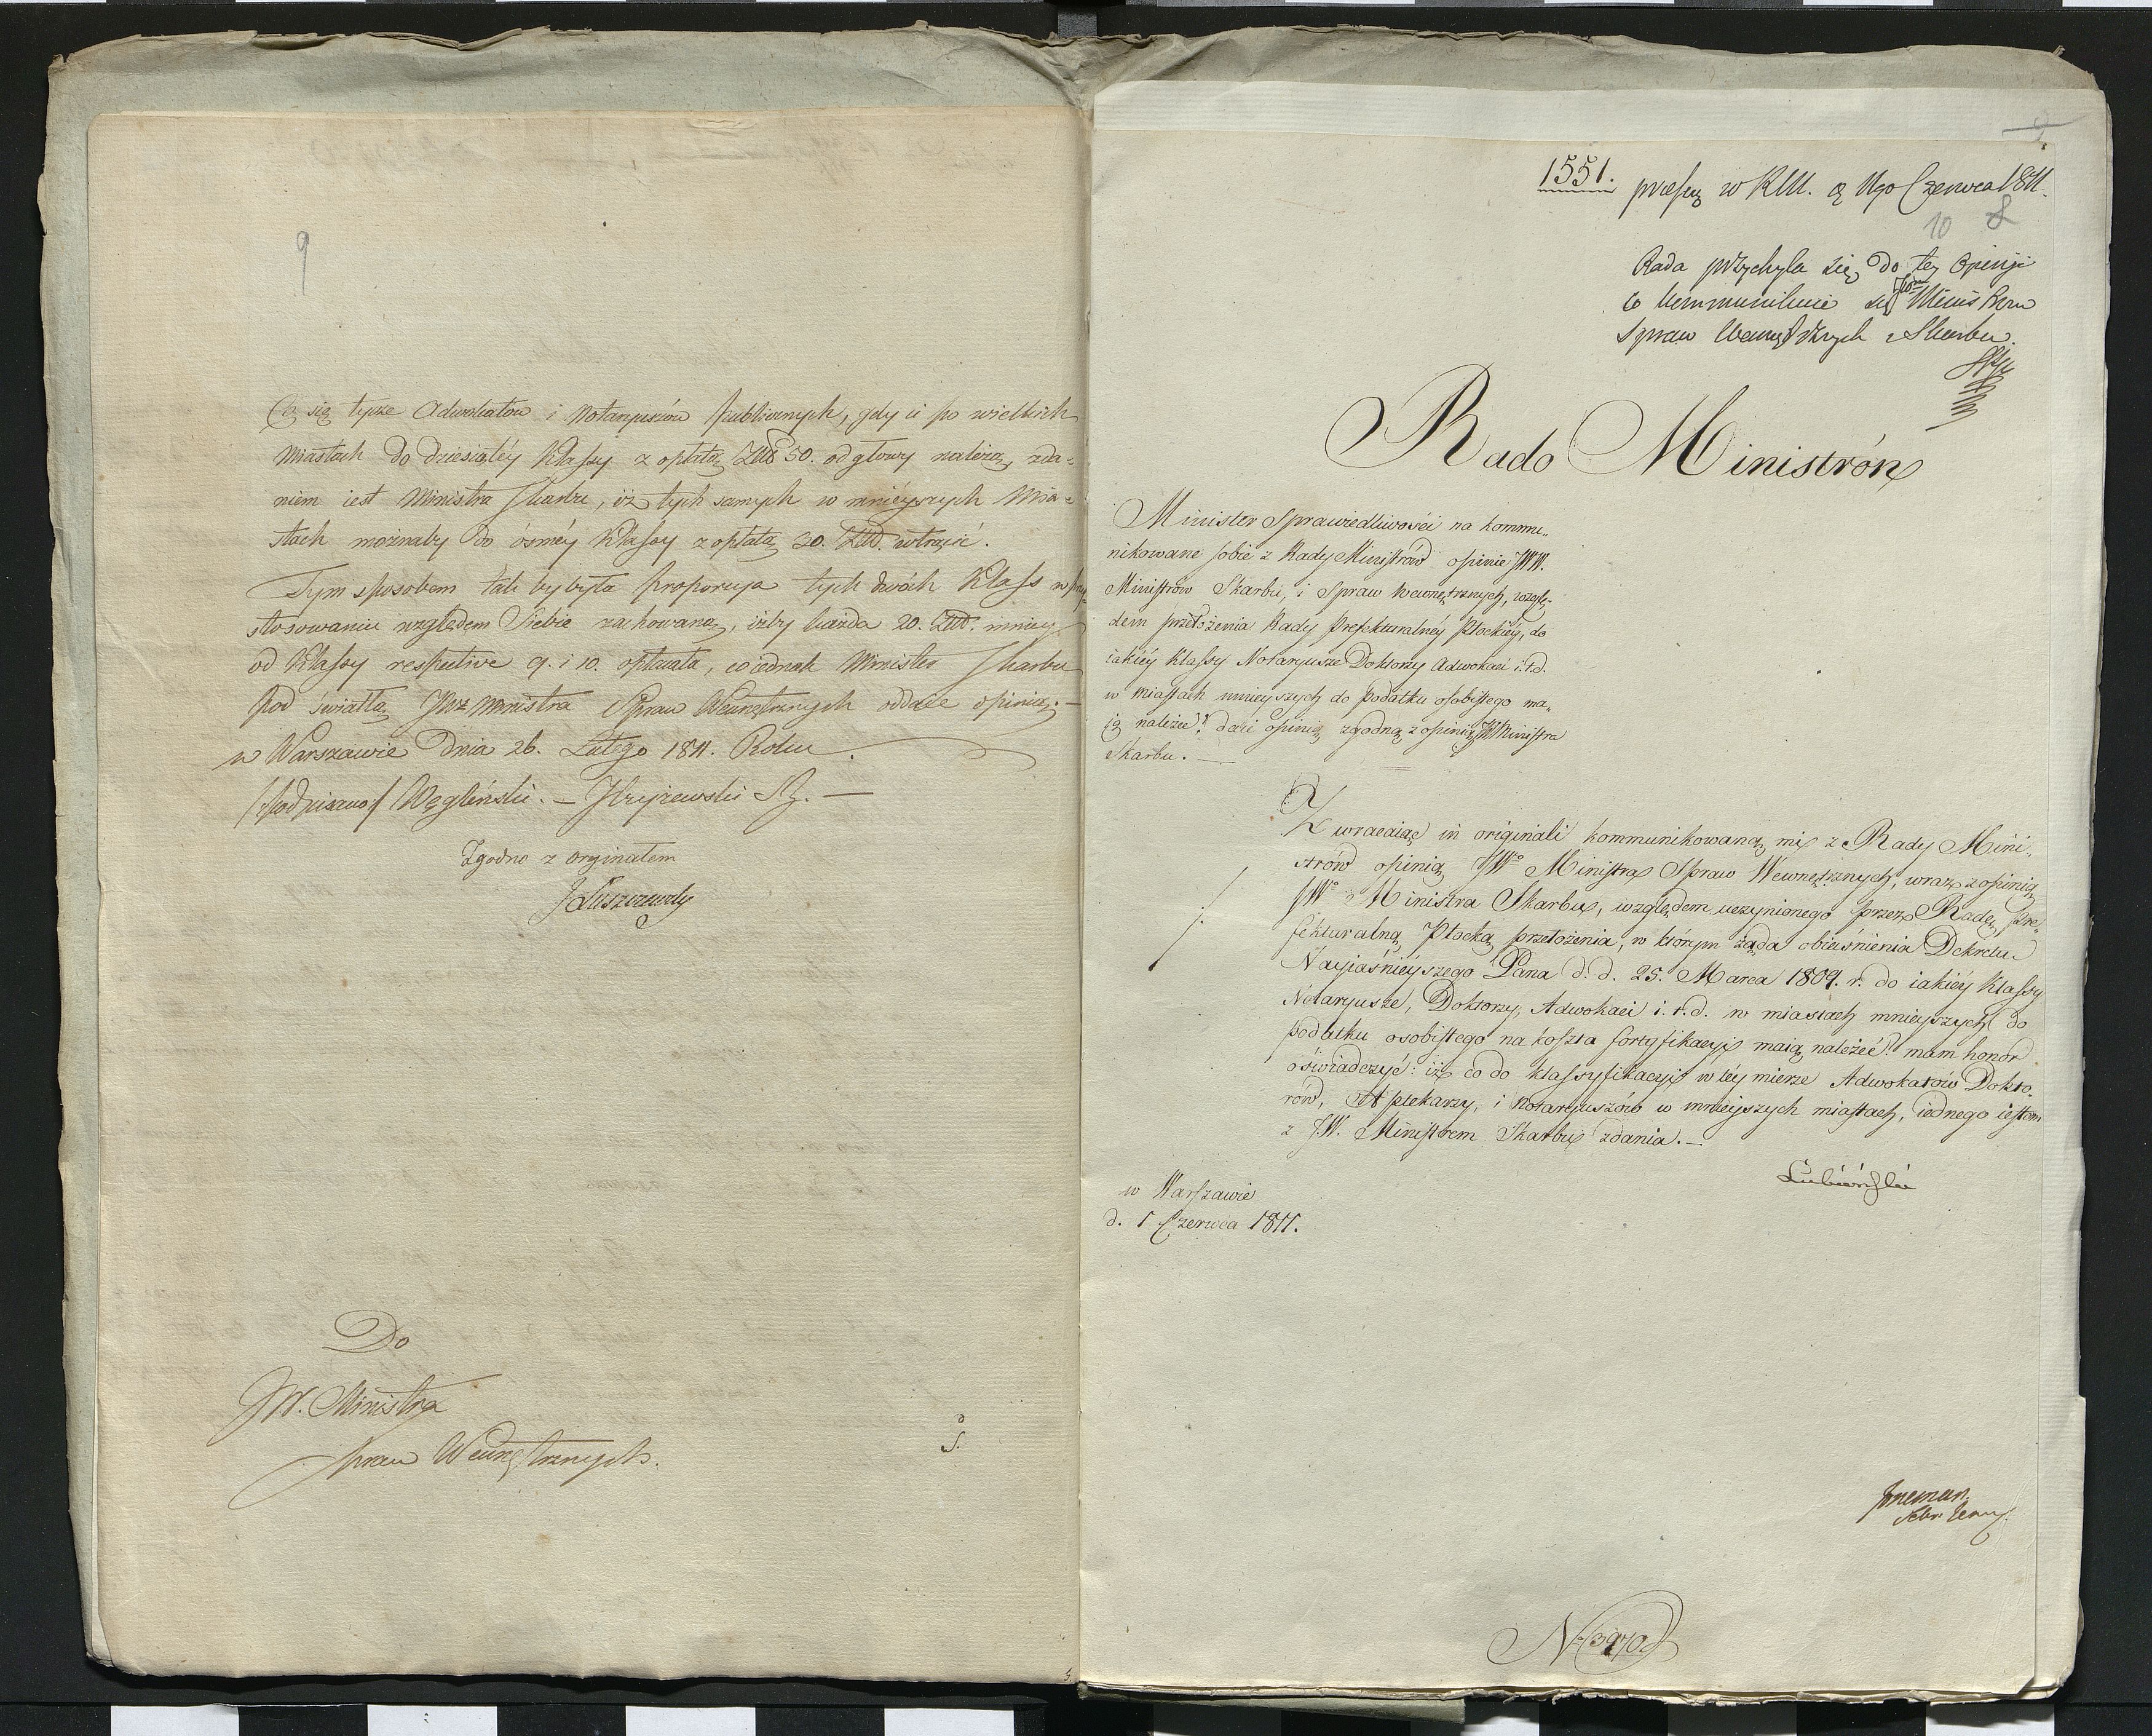 9
Co się tycze Adwokatów i Notaryuszów publicznych, gdy ci po wielkich
Miastach do dziesiątéy Klassy z opłatą 50. od głowy należą, zda-
niem iest Ministra Skarbu, iż tych samych w mnieyszych Mia-
stach możnaby do ósméy Klassy z opłatą 30. wtrącić.
Tym sposobem tak by była proporcya tych dwóch Klass w
stosowaniu względem Siebie zachowaną, iżby każda 20. mniey
od Klassy respective 9. i 10. opłacała, co iednak Minister Skarbu
pod światłą JWz Ministra Spraw Wewnętrznych oddaie opinią. —
w Warszawie dnia 26. Lutego 1811. Roku
/podpisano/ Węgleński. —
Zgodno z orginałem
JŁuszczewsky
Do
JW. Ministra
Spraw Wewnętrznych.
1551. w RM. d. 11go Czerwca 1811.
10 8
Rada przychyla się do tey Opinji
co kommunikuie się Ministrom
Spraw Wewnętrznych i Skarbu.
Rado Ministrów
Minister Sprawiedliwości na kommu-
nikowane sobie z Rady Ministrów opinie JWW.
Ministrów Skarbu, i Spraw Wewnętrznych, wzglę-
dem przełożenia Rady Prefekturalnéy Płockiéy, do
iakiéy Klassy Notaryusze Doktorzy Adwokaci i.t.d.
w miastach mnieyszych do podatku osobistego ma-
ią należeć? daie opinią zgodną z opinią JW Ministra
Skarbu. —
Zwracaiąc in originali kommunikowaną mi z Rady Mini-
strów opinią JWo Ministra Spraw Wewnętrznych, wraz z opinią
JWo Ministra Skarbu, względem uczynionego przez Radę Pre-
fekturalną Płocką przełożenia, w którym żąda obiaśnienia Dekretu
Nayiaśniéyszego Pana d. d. 25. Marca 1809. r. do iakiéy Klassy
Notaryusze, Doktorzy, Adwokaci i.t.d. w miastach mnieyszych do
podatku osobistego na koszta fortyfikacyi maią należeć? mam honor
oświadczyć: iż co do klassyfikacyi w téy mierze Adwokatów Dokto-
rów, Aptekarzy, i Notaryuszów w mnieyszych miastach, iednego iestem
z J.W. Ministrem Skarbu zdania. —
Łubieński
w Warszawie
d. 1 Czerwca 1811.
N. 3970.